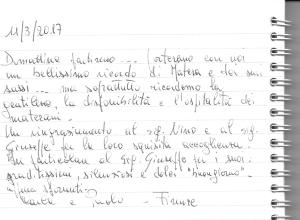 11/3/2017
Domattina partiremo ... porteremo con noi
un bellissimo ricordo di Matera e dei suoi
sassi ... ma soprattutto ricorderemo la
gentilezza, la disponibilità e l'ospitalità dei
materani.
Un ringraziamento al sig. Nino e al sig.
Giuseppe per la loro squisita accoglienza.
In particolare al Sig. Giuseppe per i suoi
graditissimi, silenziosi e dolci "buongiorno"
e - Firenze